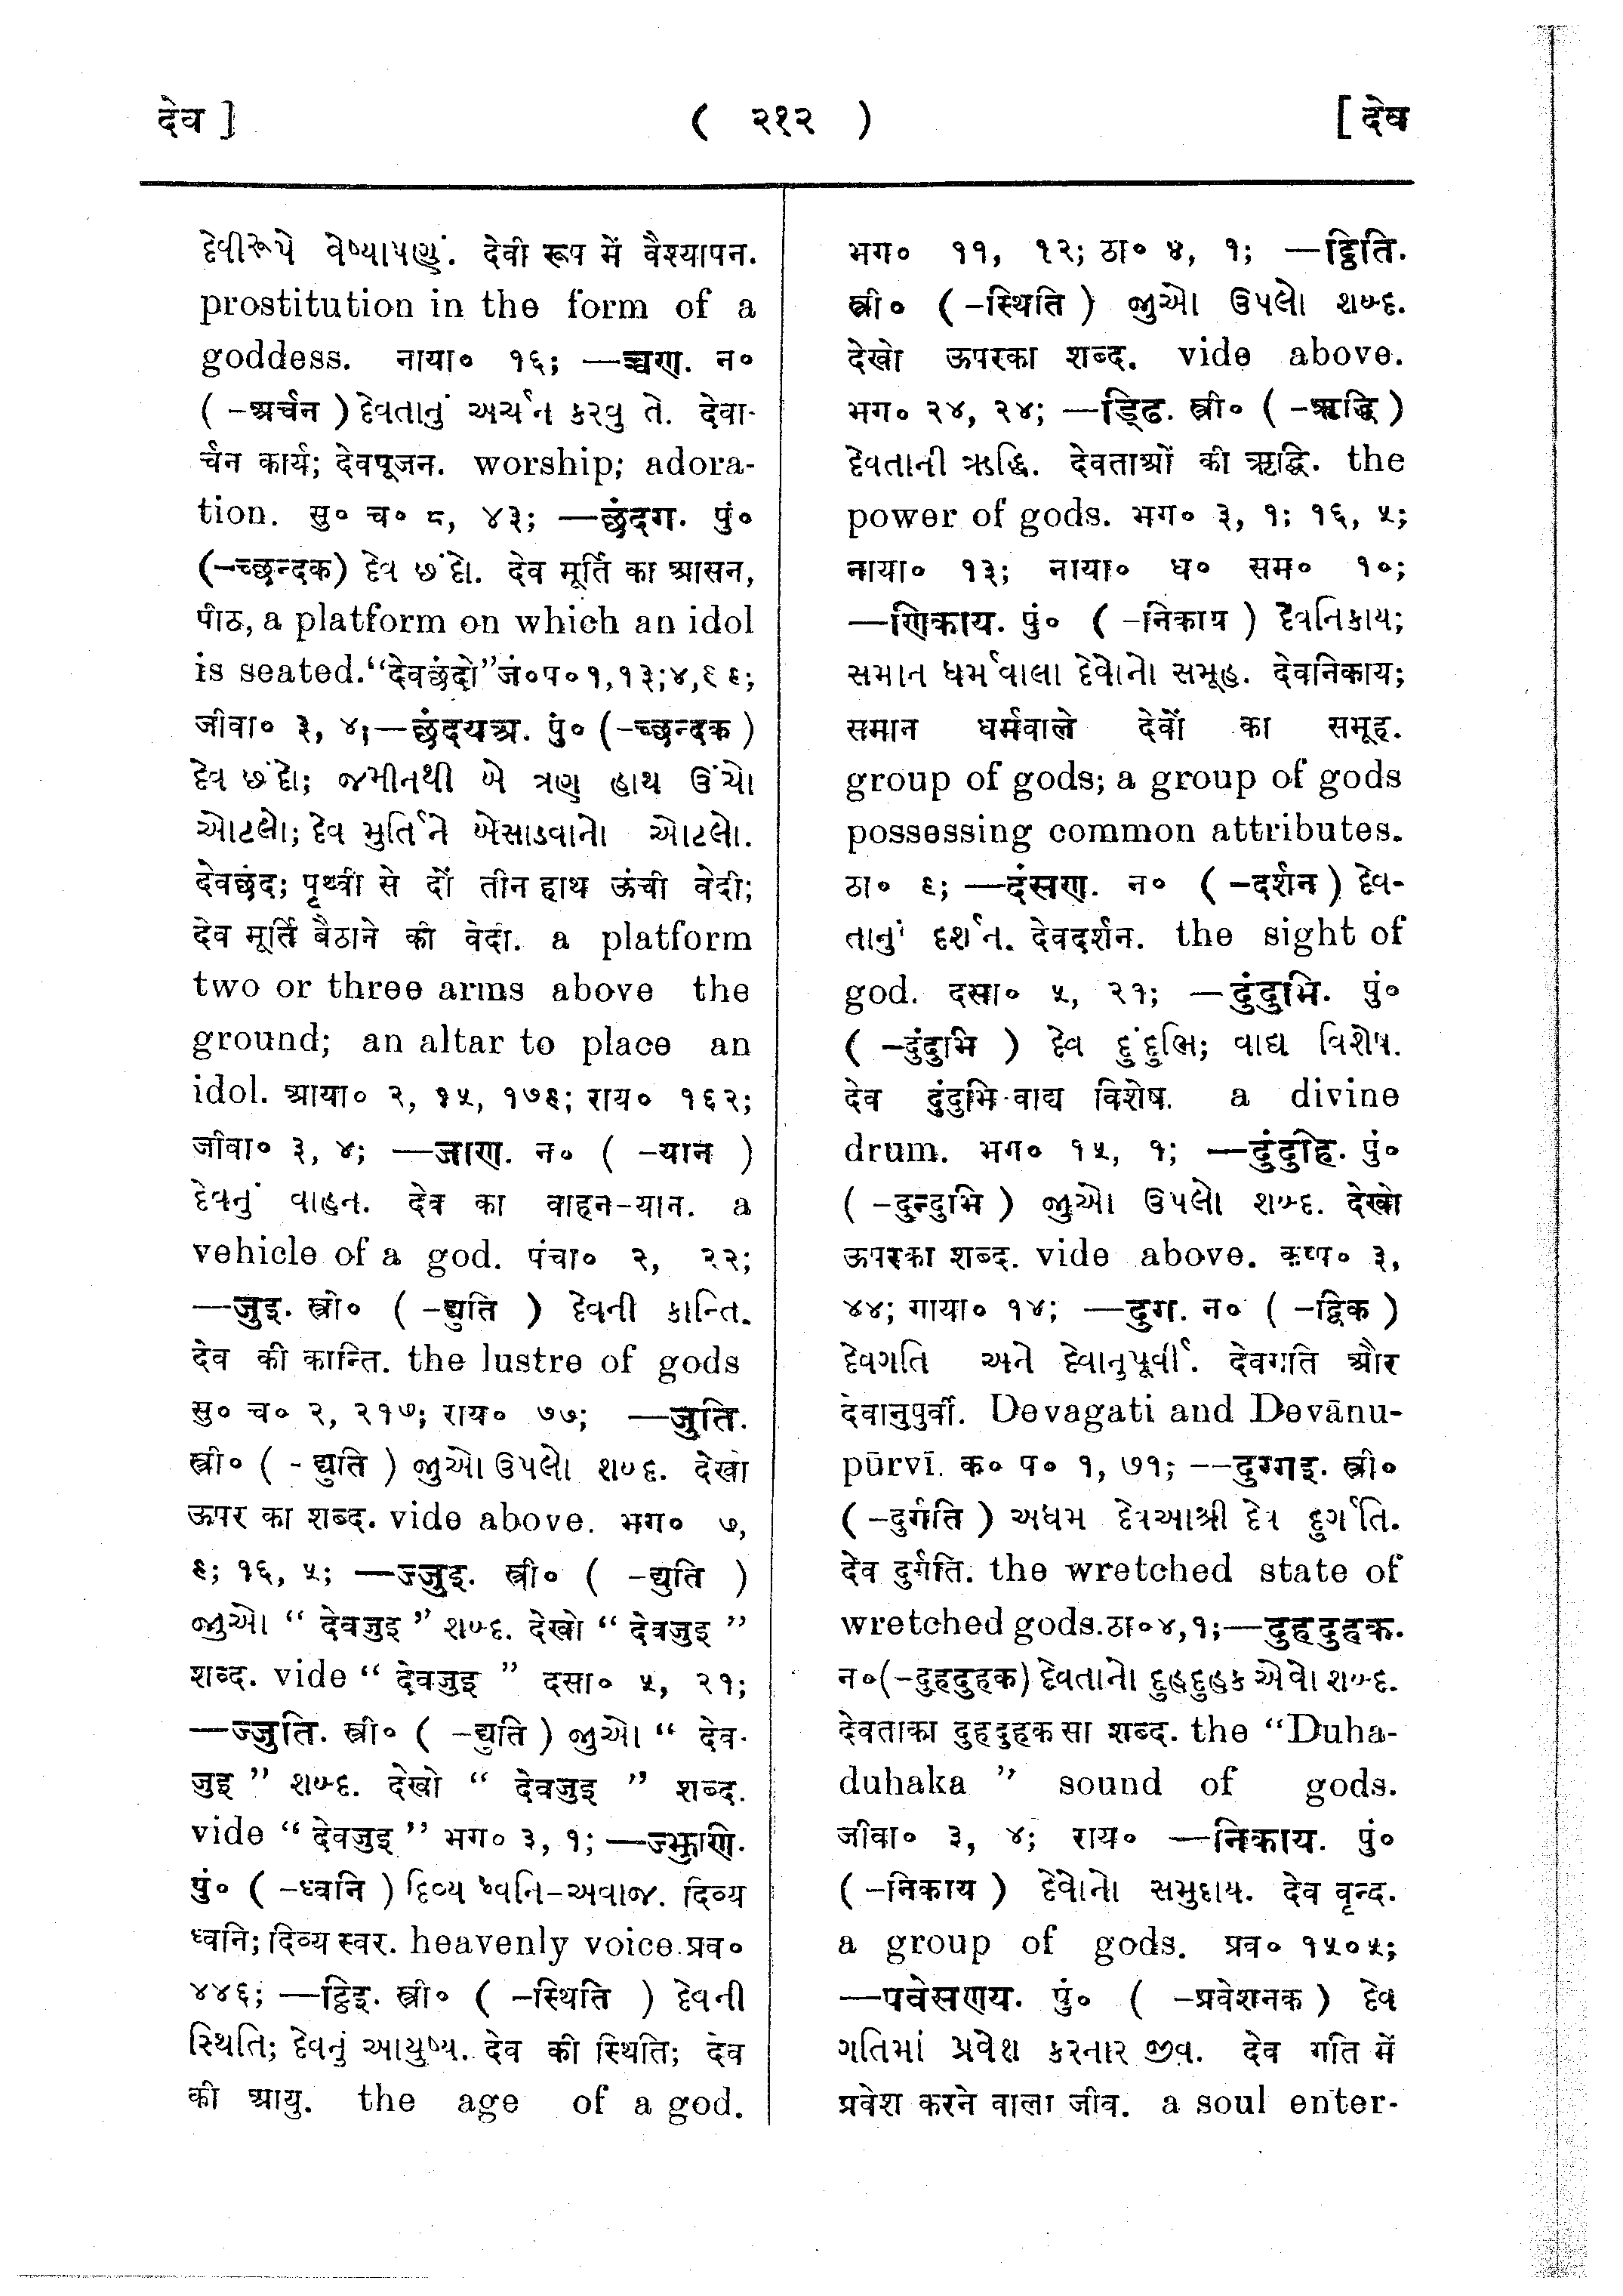 देव ]
( २१२ )
[ देव
દેવીરૂપે વેષ્યાપણું. देवी रूप में वैश्यापन.
prostitution in the form of a
goddess. नाया० १६; —च्चण. न०
( -अर्चन ) દેવતાનું અર્ચન કરવુ તે. देवा-
र्चन कार्य; देवपूजन. worship; adora-
tion. सु० च० ८, ४३; —छंदग. पुं०
(-च्छन्दक) દેવ છંદો. देव मूर्ति का आसन,
पीठ, a platform on which an idol
is seated. “देवछंदो” जं० प० १, १३; ४, ९९;
जीवा० ३, ४; —छंदयअ. पुं० (-च्छन्दक )
દેવ છંદો; જમીનથી બે ત્રણ હાથ ઉંચો
ઓટલો; દેવ મુર્તિને બેસાડવાનો ઓટલો.
देवछंद; पृथ्वी से दों तीन हाथ ऊंची वेदी;
देव मूर्ति बैठाने की वेदी. a platform
two or three arms above the
ground; an altar to place an
idol. आया० २, १५, १७९; राय० १६२;
जीवा० ३, ४; —जाण. न० ( -यान )
દેવનું વાહન. देव का वाहन-यान. a
vehicle of a god. पंचा० २, २२;
—जुइ. स्त्री० ( -द्युति ) દેવની કાન્તિ.
देव की कान्ति. the lustre of gods
सु० च० २, २१७; राय० ७७; —जुति.
स्त्री० ( - द्युति ) જુઓ ઉપલો શબ્દ. देखो
ऊपर का शब्द. vide above. भग० ७,
९; १६, ५; —ज्जुइ. स्त्री० ( -द्युति )
જુઓ “ देवजुइ ” શબ્દ. देखो “ देवजुइ ”
शब्द. vide “ देवजुइ ” दसा० ५, २१;
—ज्जुति. स्त्री० ( -द्युति ) જુઓ “ देव-
जुइ ” શબ્દ. देखो “ देवजुइ ” शब्द.
vide “ देवजुइ ” भग० ३, १; —ज्झुणि.
पुं० ( -ध्वनि ) દિવ્ય ધ્વનિ-અવાજ. दिव्य
ध्वनि; दिव्य स्वर. heavenly voice. प्रव०
४४६; —ट्ठिइ. स्त्री० ( -स्थिति ) દેવની
સ્થિતિ; દેવનું આયુષ્ય. देव की स्थिति; देव
की आयु. the age of a god.
भग० ११, १२; ठा० ४, १; —ट्ठिति.
स्त्री० ( -स्थिति ) જુઓ ઉપલો શબ્દ.
देखो ऊपरका शब्द. vide above.
भग० २४, २४; —ड्ढि. स्त्री० ( -ऋद्धि )
દેવતાની ઋદ્ધિ. देवताओं की ऋद्धि. the
power of gods. भग० ३, १; १६, ५;
नाया० १३; नाया० ध० सम० १०;
—णिकाय. पुं० ( -निकाय ) દેવનિકાય;
સમાન ધર્મવાલા દેવોનો સમૂહ. देवनिकाय;
समान धर्मवाले देवों का समूह.
group of gods; a group of gods
possessing common attributes.
ठा० ९; —दंसण. न० ( -दर्शन ) દેવ-
તાનું દર્શન. देवदर्शन. the sight of
god. दसा० ५, २१; —दुंदुभि. पुं०
( -दुंदुभि ) દેવ દુંદુભિ; વાદ્ય વિશેષ.
देव दुंदुभि-वाद्य विशेष. a divine
drum. भग० १५, १; —दुंदुहि. पुं०
( -दुन्दुभि ) જુઓ ઉપલો શબ્દ. देखो
ऊपरका शब्द. vide above. कप्प० ३,
४४; गाया० १४; —दुग. न० ( -द्विक )
દેવગતિ અને દેવાનુપૂર્વી. देवगति और
देवानुपुर्वी. Devagati and Devānu-
pūrvī. क० प० १, ७१; —दुग्गइ. स्त्री०
( -दुर्गति ) અધમ દેવઆશ્રી દેવ દુર્ગતિ.
देव दुर्गति. the wretched state of
wretched gods. ठा० ४, १; —दुहदुहक.
न० (-दुहदुहक) દેવતાનો દુહદુહક એવો શબ્દ.
देवताका दुहदुहक सा शब्द. the “Duha-
duhaka ” sound of gods.
जीवा० ३, ४; राय० —निकाय. पुं०
( -निकाय ) દેવોનો સમુદાય. देव वृन्द.
a group of gods. प्रव० १५०५;
—पवेसणय. पुं० ( -प्रवेशनक ) દેવ
ગતિમાં પ્રવેશ કરનાર જીવ. देव गति में
प्रवेश करने वाला जीव. a soul enter-